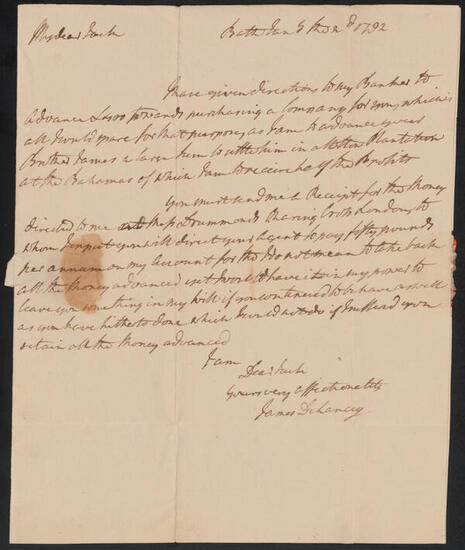 My dear Jack Bath Jany the 2d 1792
I have given directions to my Banker to
advance £500 towards purchasing a Company for you, which is
all I would spare for that purpose, as I am to advance your
Brother James a large Sum to settle him in a Cotton Plantation
at the Bahamas of which I am to receive half the Profits
You must send me a Receipt for the Money
directed to me at Messrs Drummonds Charing Cross London, to
whom I expect you will direct your Agent to pay fifty pounds
per annum on my Account for tho I do not mean to take back
all the Money advanced yet I would have it in my power to
leave you something in my Will if you continued to behave as well
as you have hitherto done which I could not do if I suffered you
retain all the Money advanced
I am
Dear Jack
Yours very affectionately
James Delancey